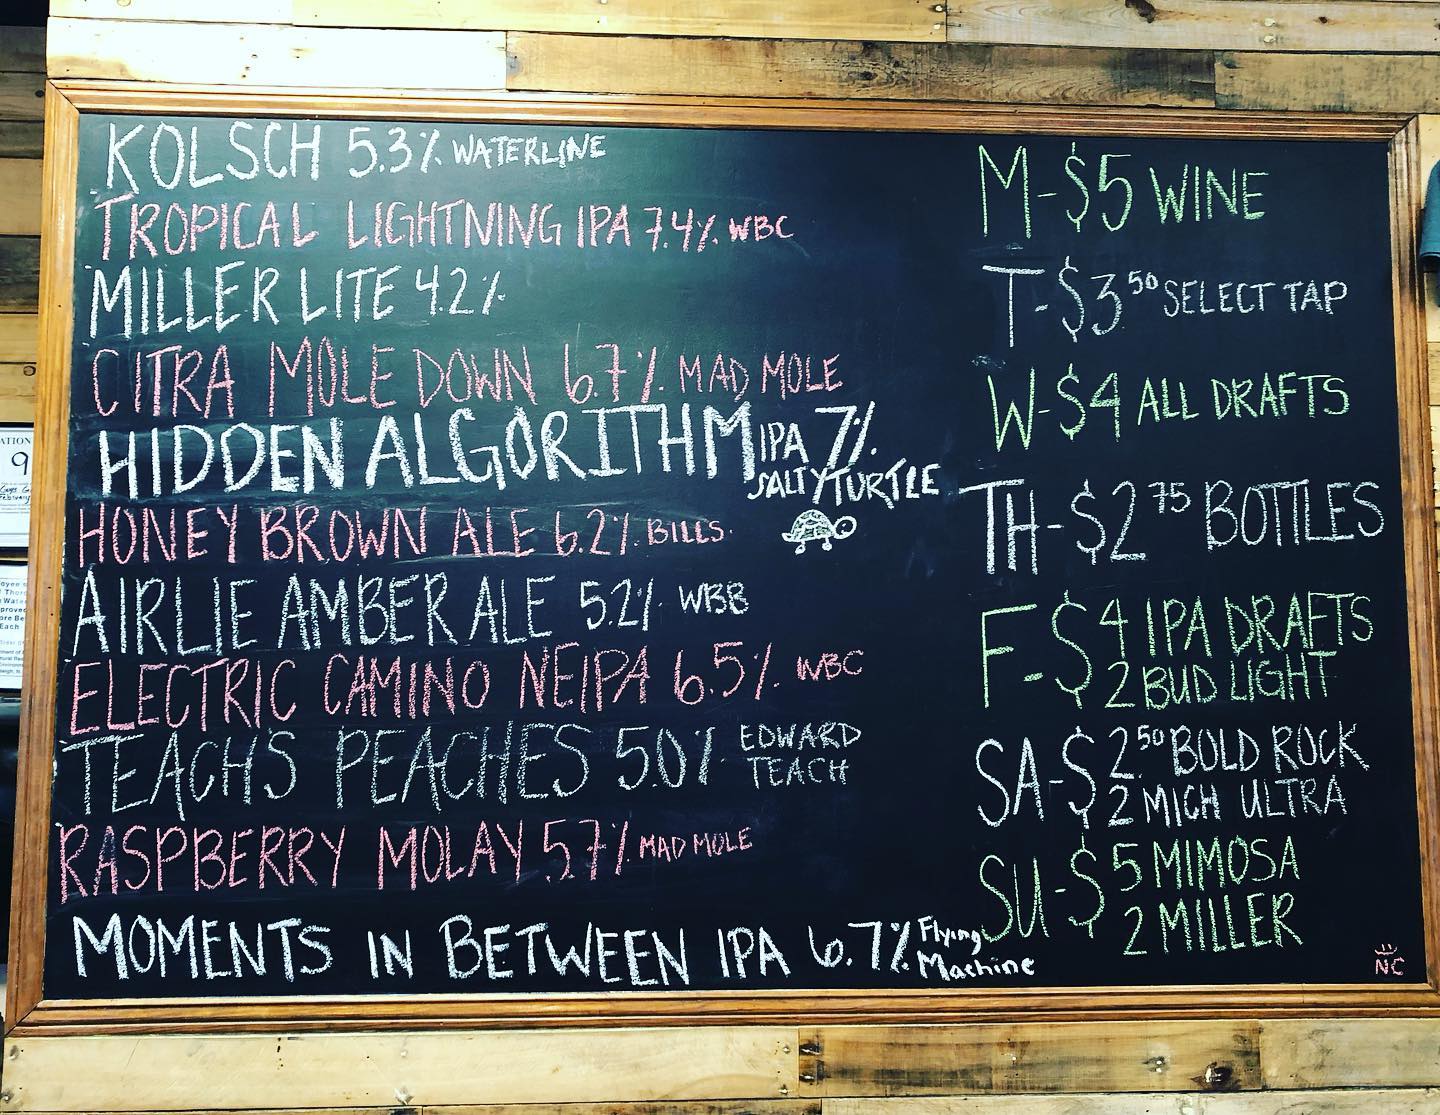 KOLSCH 5.3% WATERLINE
TROPICAL LIGHTNING IPA 7.4% WBC
MILLER LITE 4.2%
CITRA MOLE DOWN 6.7% MAD MOLE
HIDDEN ALGORITHM IPA 7%
SALTY TURTLE
HONEY BROWN ALE 6.2% BILLS
AIRLIE AMBER ALE 5.2% WBB
ELECTRIC CAMINO NEIPA 6.5% WBC
TEACH'S PEACHES 5.0% EDWARD
TEACH
RASPBERRY MOLAY 5.7% MAD MOLE
MOMENTS IN BETWEEN IPA 6.7% Flying
Machine
M-$5 WINE
T-$3 50 SELECT TAP
W-$4 ALL DRAFTS
TH-$2 75 BOTTLES
F-$4 IPA DRAFTS
2 BUD LIGHT
SA-$2.50 BOLD ROCK
2 MICH ULTRA
SU-$5 MIMOSA
2 MILLER
NC
ATION
9